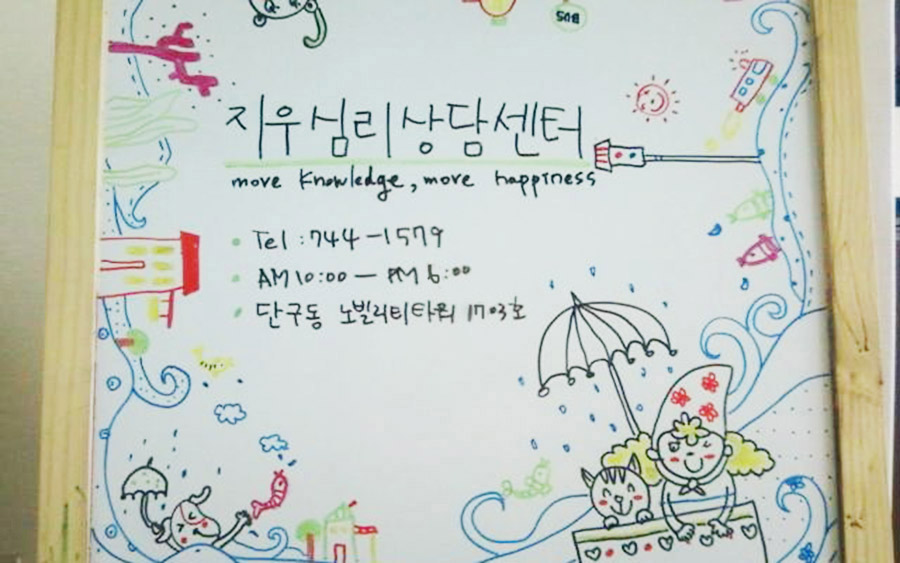 BUS
지우심리상담센터
move knowledge, move happiness
Tel : 744-1579
AM 10:00 - PM 6:00
단구동 노빌리티타워 1703호